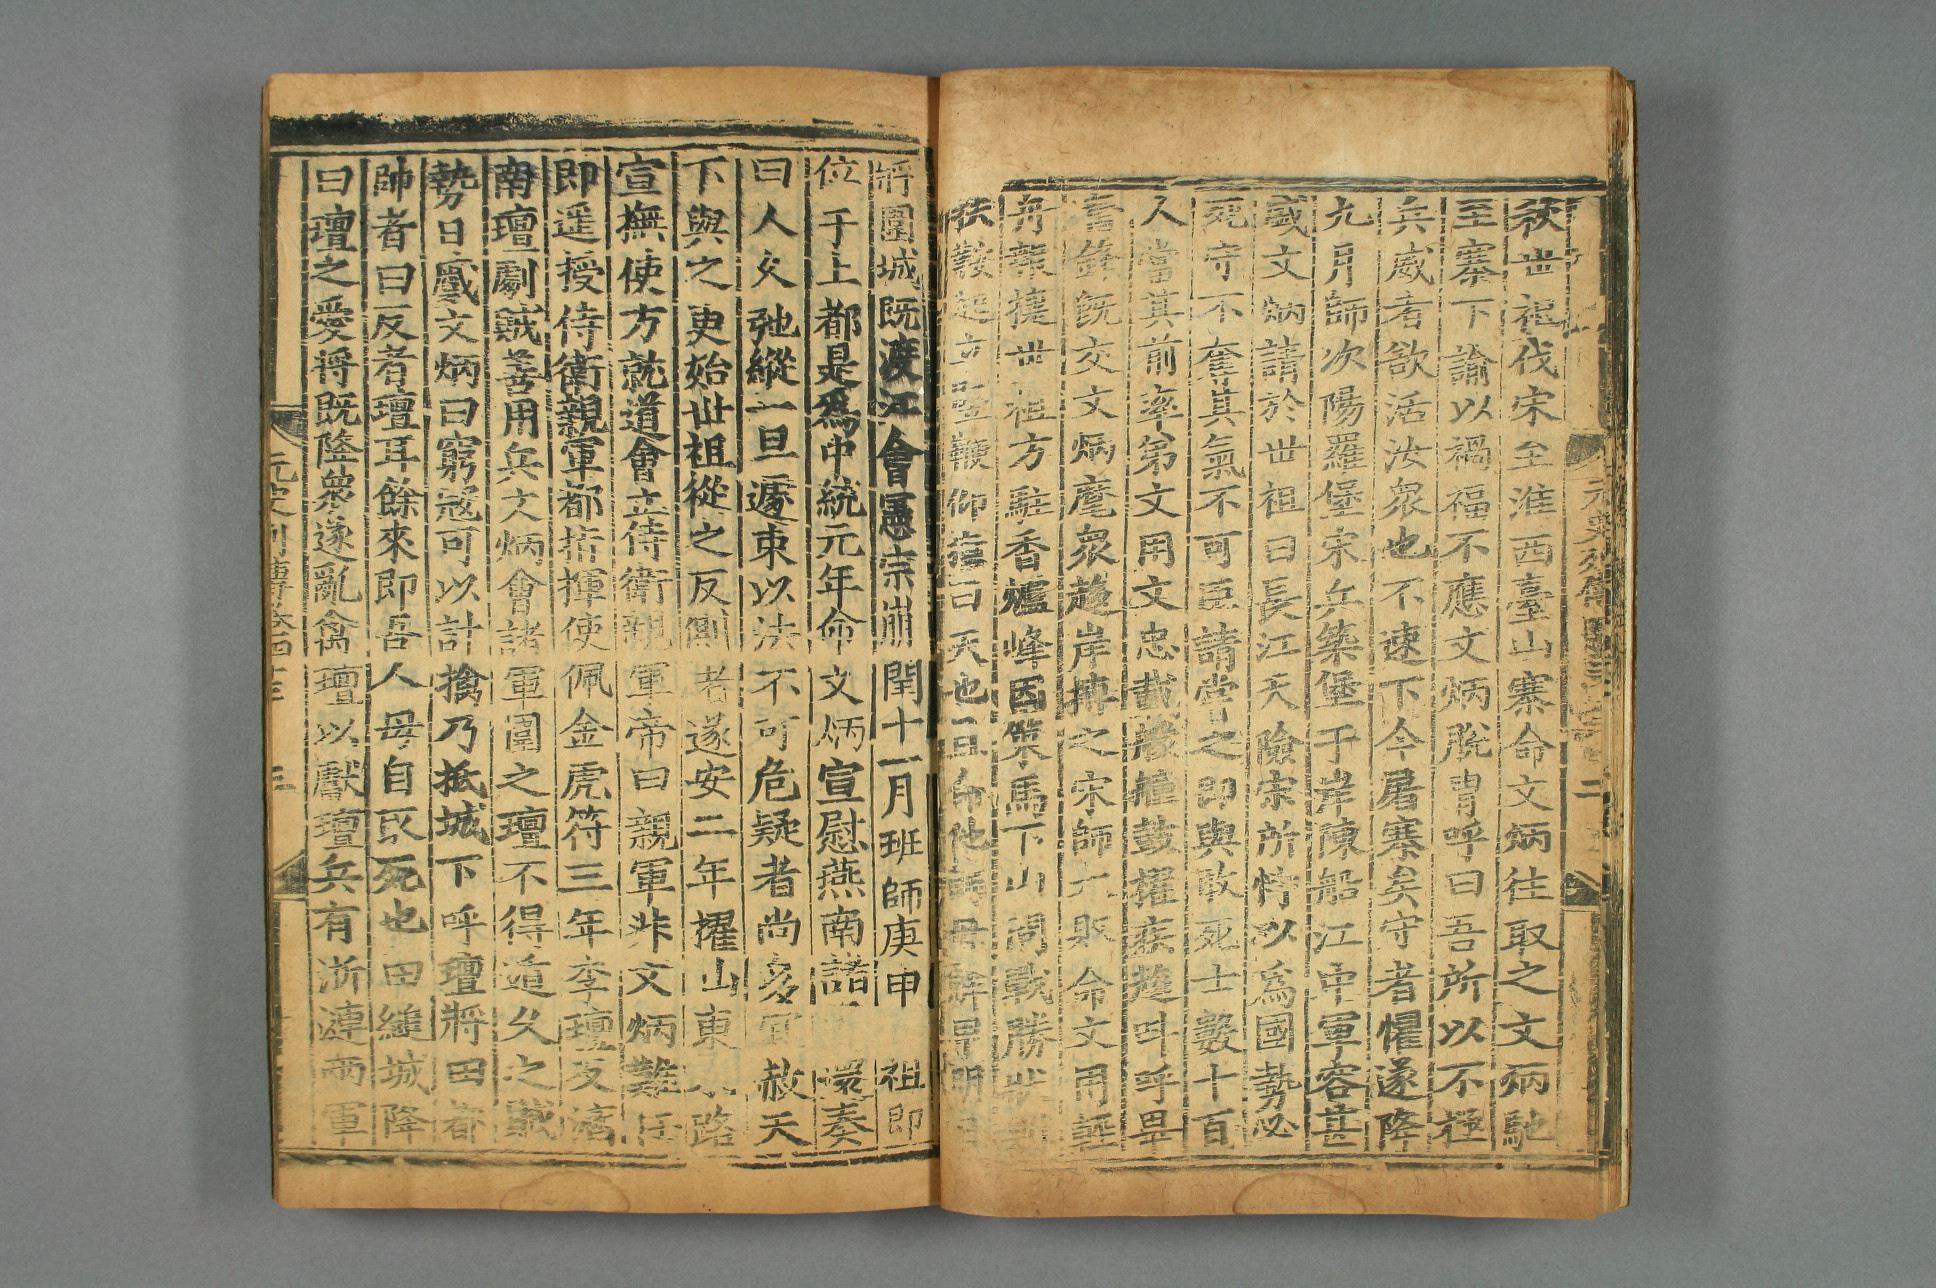 秋世祖伐宋至淮西臺山寨命文炳往取之文炳馳
至寨下諭以禍福不應文炳脫冑呼曰吾所以不極
兵威者欲活汝眾也不速下今屠寨矣守者懼遂降
九月師次陽羅堡宋兵築堡于岸陳船江中軍容甚
盛文炳請於世祖曰長江天險宋所恃以爲國勢必
死守不奪其氣不可臣請嘗之即與敢死士數十百
人當其前率弟文用文忠載艨艟鼓櫂疾趨叫呼畢
奮鋒既交文炳麾眾趨岸搏之宋師大敗命文用輕
舟報捷世祖方駐香爐峰因策馬下山問戰勝狀則
扶鞍起立竪鞭仰指曰天也且命他師毋解甲明日
將圍城既渡江會憲宗崩閏十一月班師庚申 祖即
位于上都是爲中統元年命文炳宣慰燕南諸 還奏
曰人久弛縱一旦遽束以法不可危疑者尚多宜赦天
下與之更始世祖從之反側者遂安二年擢山東 路
宣撫使方就道會立侍衛親軍帝曰親軍非文炳難任
即遥授侍衛親軍都指揮使佩金虎符三年李璮反濟
南璮劇賊善用兵文炳會諸軍圍之璮不得遁久之賊
勢日蹙文炳曰窮寇可以計擒乃抵城下呼璮將田都
帥者曰反者璮耳餘來即吾人毋自取死也田縋城降
曰璮之愛將既降衆遂亂禽璮以獻璮兵有浙漣兩軍
元史列傳卷四十三 三